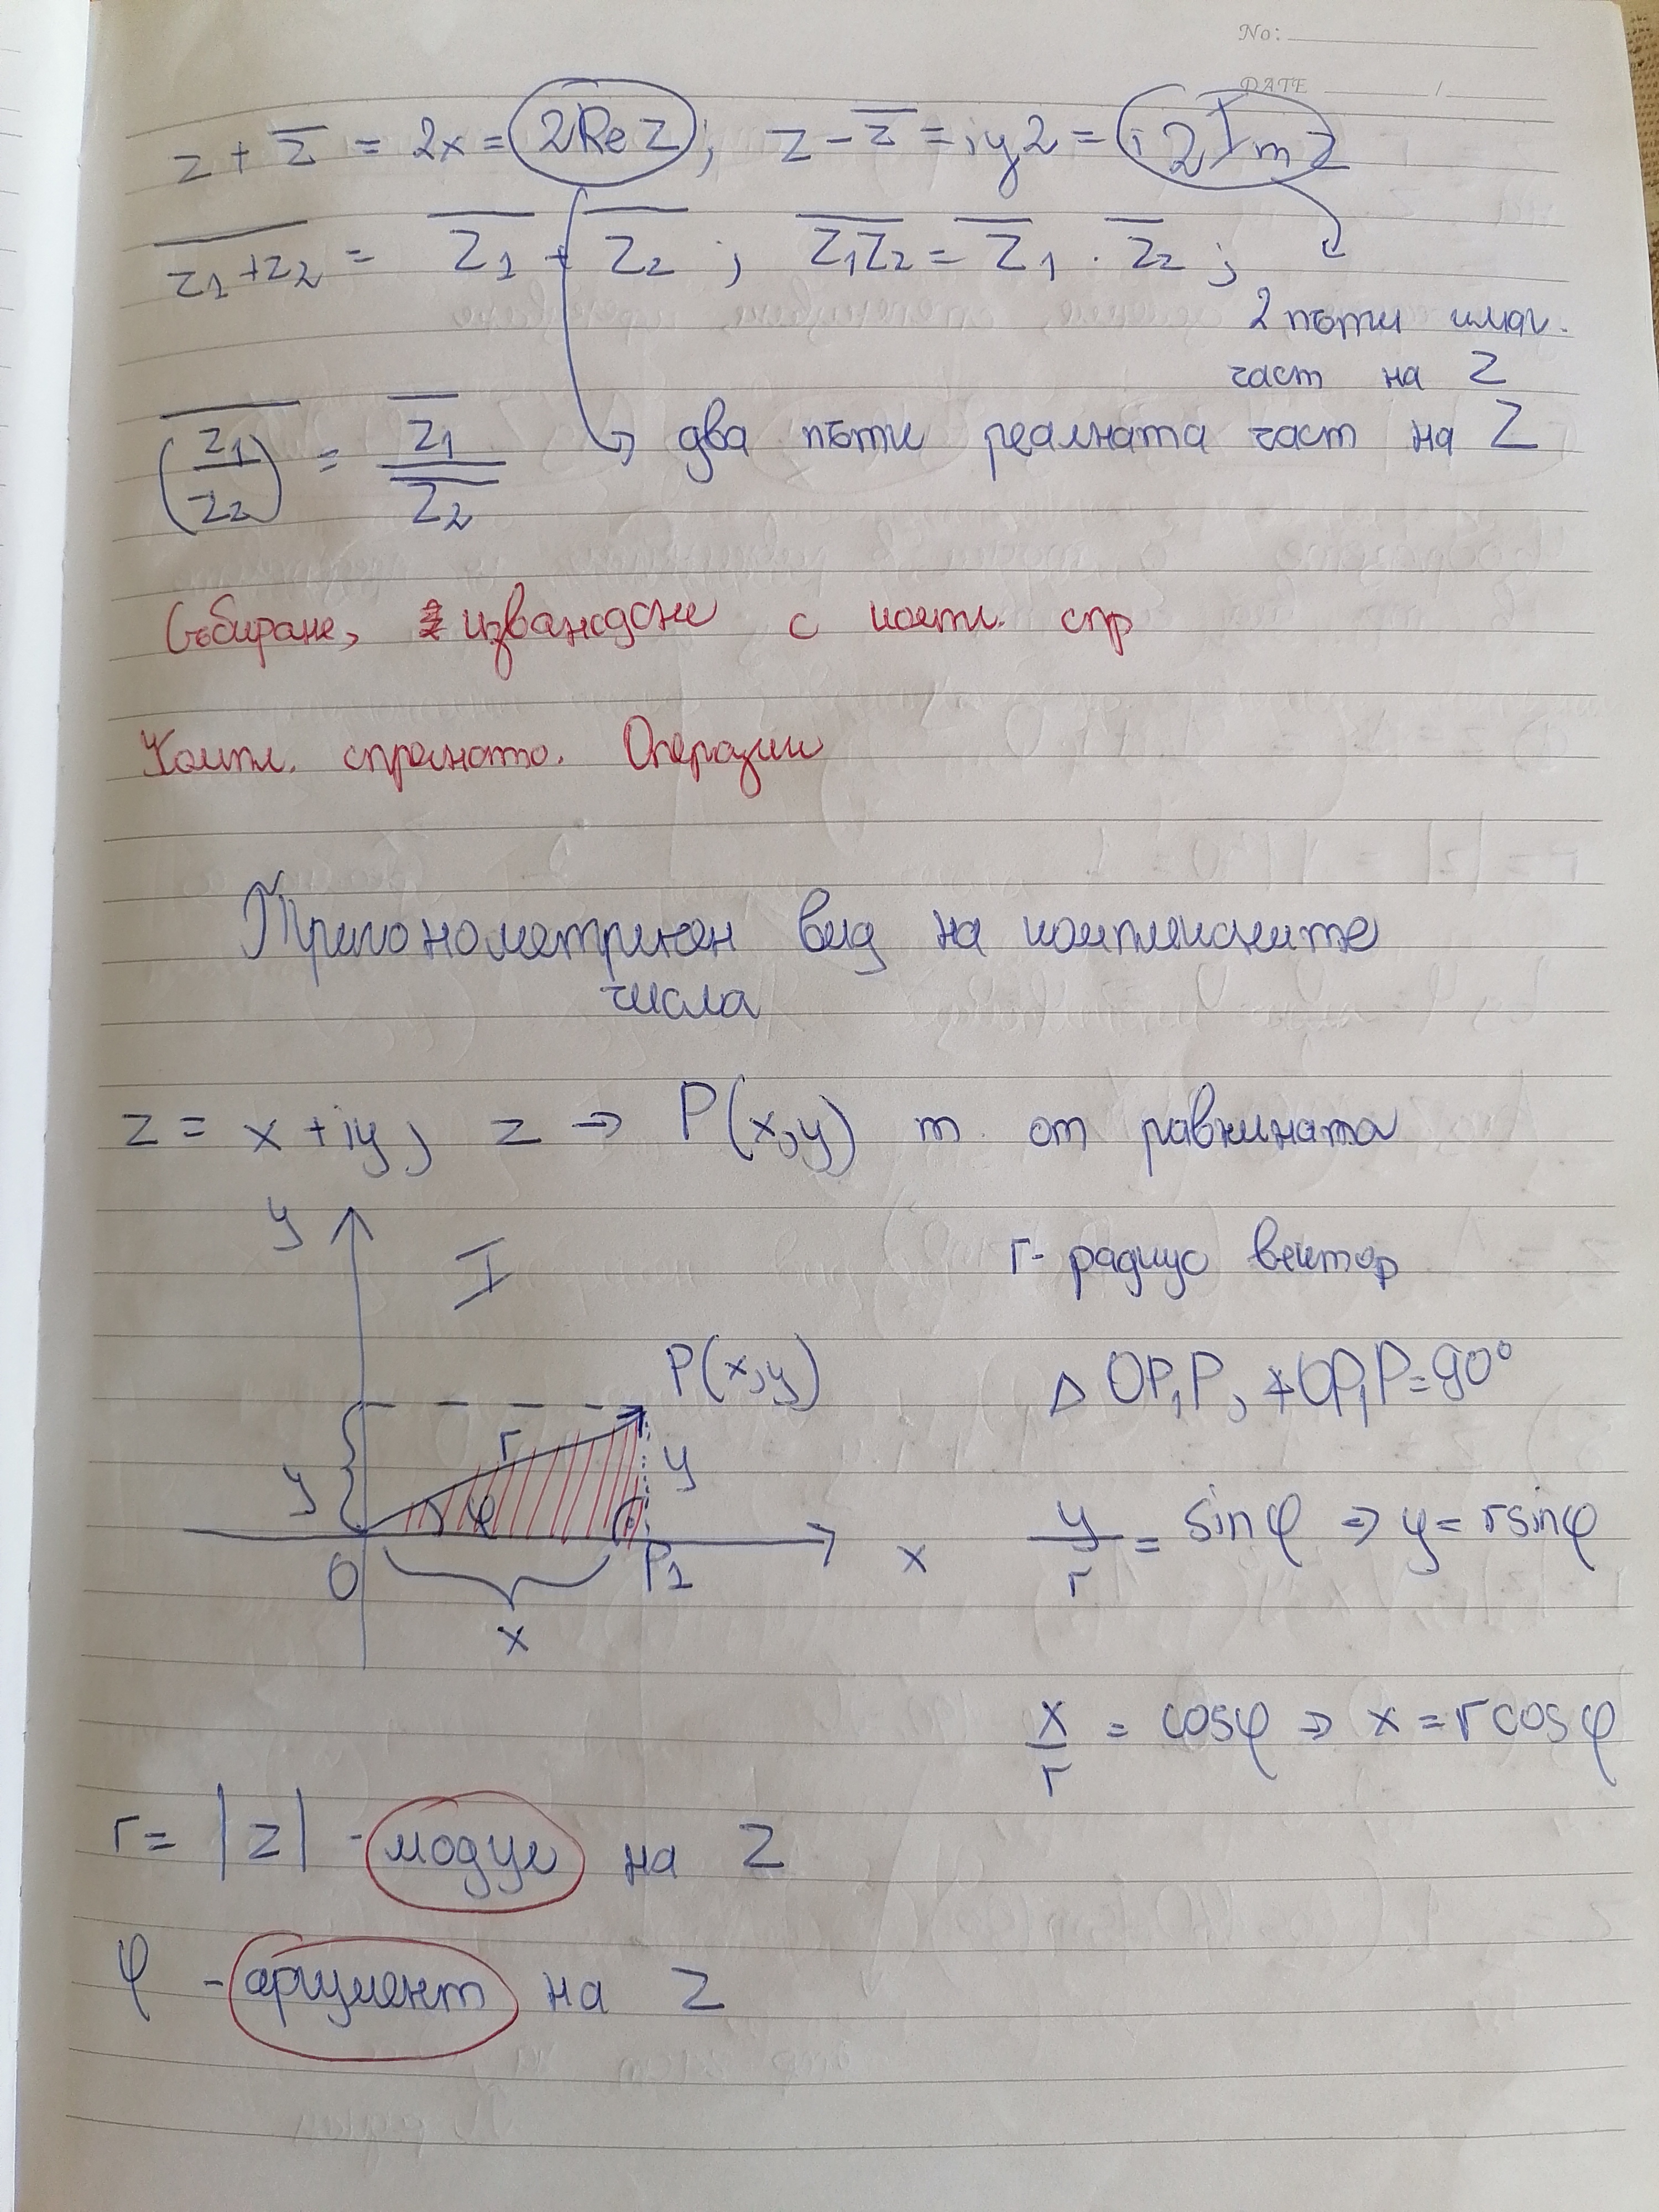 No:
DATE /
z + z̅ = 2x = 2Re z ; z - z̅ = iy2 = i2Im z
z̅₁̅+̅z̅₂̅ = z̅₁ + z̅₂ ; z̅₁̅z̅₂̅ = z̅₁ . z̅₂ ;
2 пъти имаг.
част на z
(z₁/z₂)̅ = z̅₁/z̅₂ → два пъти реалната част на z
Събиране, изваждане с компл. спр
Компл. спрегнато. Операции
Тригонометричен вид на комплексните
числа
z = x + iy ; z → P(x,y) т. от равнината
y I r - радиус вектор
P(x,y) Δ OP₁P, ∡OP₁P = 90°
r y
y φ y/r = sinφ ⇒ y = rsinφ
O P₁ x
x
x/r = cosφ ⇒ x = rcosφ
r = |z| - модул на z
φ - аргумент на z